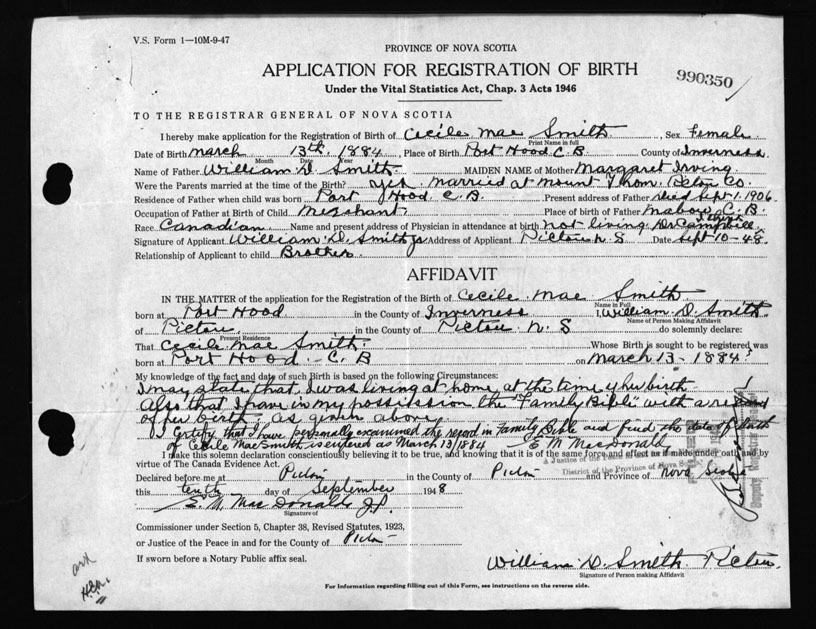 V.S. Form 1—10M-9-47
PROVINCE OF NOVA SCOTIA
APPLICATION FOR REGISTRATION OF BIRTH
990350
Under the Vital Statistics Act, Chap. 3 Acts 1946
TO THE REGISTRAR GENERAL OF NOVA SCOTIA
I hereby make application for the Registration of Birth of Cecile Mae Smith, Sex Female
Print Name in full
Date of Birth March 13th, 1884, Place of Birth Port Hood C.B. County of Inverness
Month Day Year
Name of Father William D. Smith MAIDEN NAME of Mother Margaret Irving
Were the Parents married at the time of Birth? yes married at Mount Thom. Pictou Co.
Residence of Father when child was born Port Hood C.B. Present address of Father died Sept 1. 1906
Occupation of Father at Birth of Child Merchant Place of birth of Father Mabou, C.B.
Race Canadian Name and present address of Physician in attendance at birth not living Dr Campbell
Signature of Applicant William D. Smith Address of Applicant Pictou N.S Date Sept 10-48
Relationship of Applicant to child Brother
AFFIDAVIT
IN THE MATTER of the application for the Registration of the Birth of Cecile Mae Smith
Name in Full
born at Port Hood in the County of Inverness I, William D. Smith
Name of Person Making Affidavit
of Pictou in the County of Pictou N.S do solemnly declare:
Present Residence
That Cecile Mae Smith Whose Birth is sought to be registered was
born at Port Hood - C.B on March 13-1884
My knowledge of the fact and date of such Birth is based on the following Circumstances:
I may state that, I was living at home, at the time of her birth
Also that I have in my possission the "Family Bible" with a record
of her birth, as given above
I Certify that I have personally examined the record in Family Bible and find the date of birth
of Cecile Mae Smith is entered as March 13/1884 E M MacDonald
I make this solemn declaration conscientiously believing it to be true, and knowing that it is of the same force and effect as if made under oath and by
virtue of The Canada Evidence Act.
A Justice of the Peace
District of the Province of Nova Scotia
Declared before me at Pictou in the County of Pictou and Province of Nova Scotia
this tenth day of September 1948
E. M. MacDonald J.P.
Signature of
Commissioner under Section 5, Chapter 38, Revised Statutes, 1923,
or Justice of the Peace in and for the County of Pictou
If sworn before a Notary Public affix seal.
William D. Smith Pictou
Signature of Person making Affidavit
For Information regarding filling out of this Form, see instructions on the reverse side.